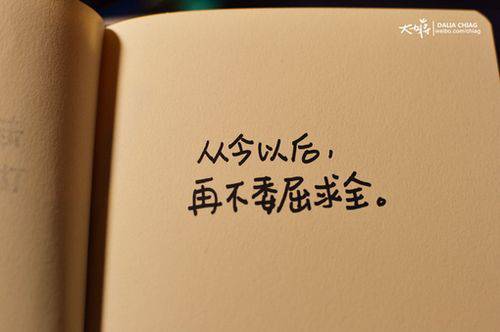 DALIA CHIAG
weibo.com/chiag
从今以后，
再不委屈求全。